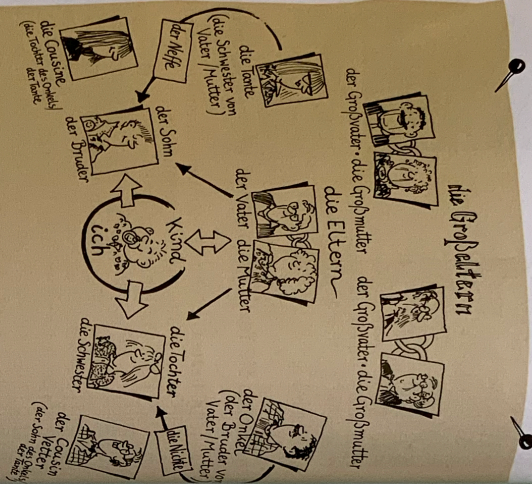 die Großeltern
der Großvater • die Großmutter
der Großvater • die Großmutter
die Eltern
der Vater die Mutter
die Tante
(die Schwester von
Vater/Mutter)
der Onkel
(der Bruder von
Vater/Mutter)
der Neffe
der Sohn
die Tochter
die Nichte
Kind
ich
der Bruder
die Schwester
die Cousine
(die Tochter des Onkels/
der Tante)
der Cousin
Vetter
(der Sohn des Onkels/
der Tante)